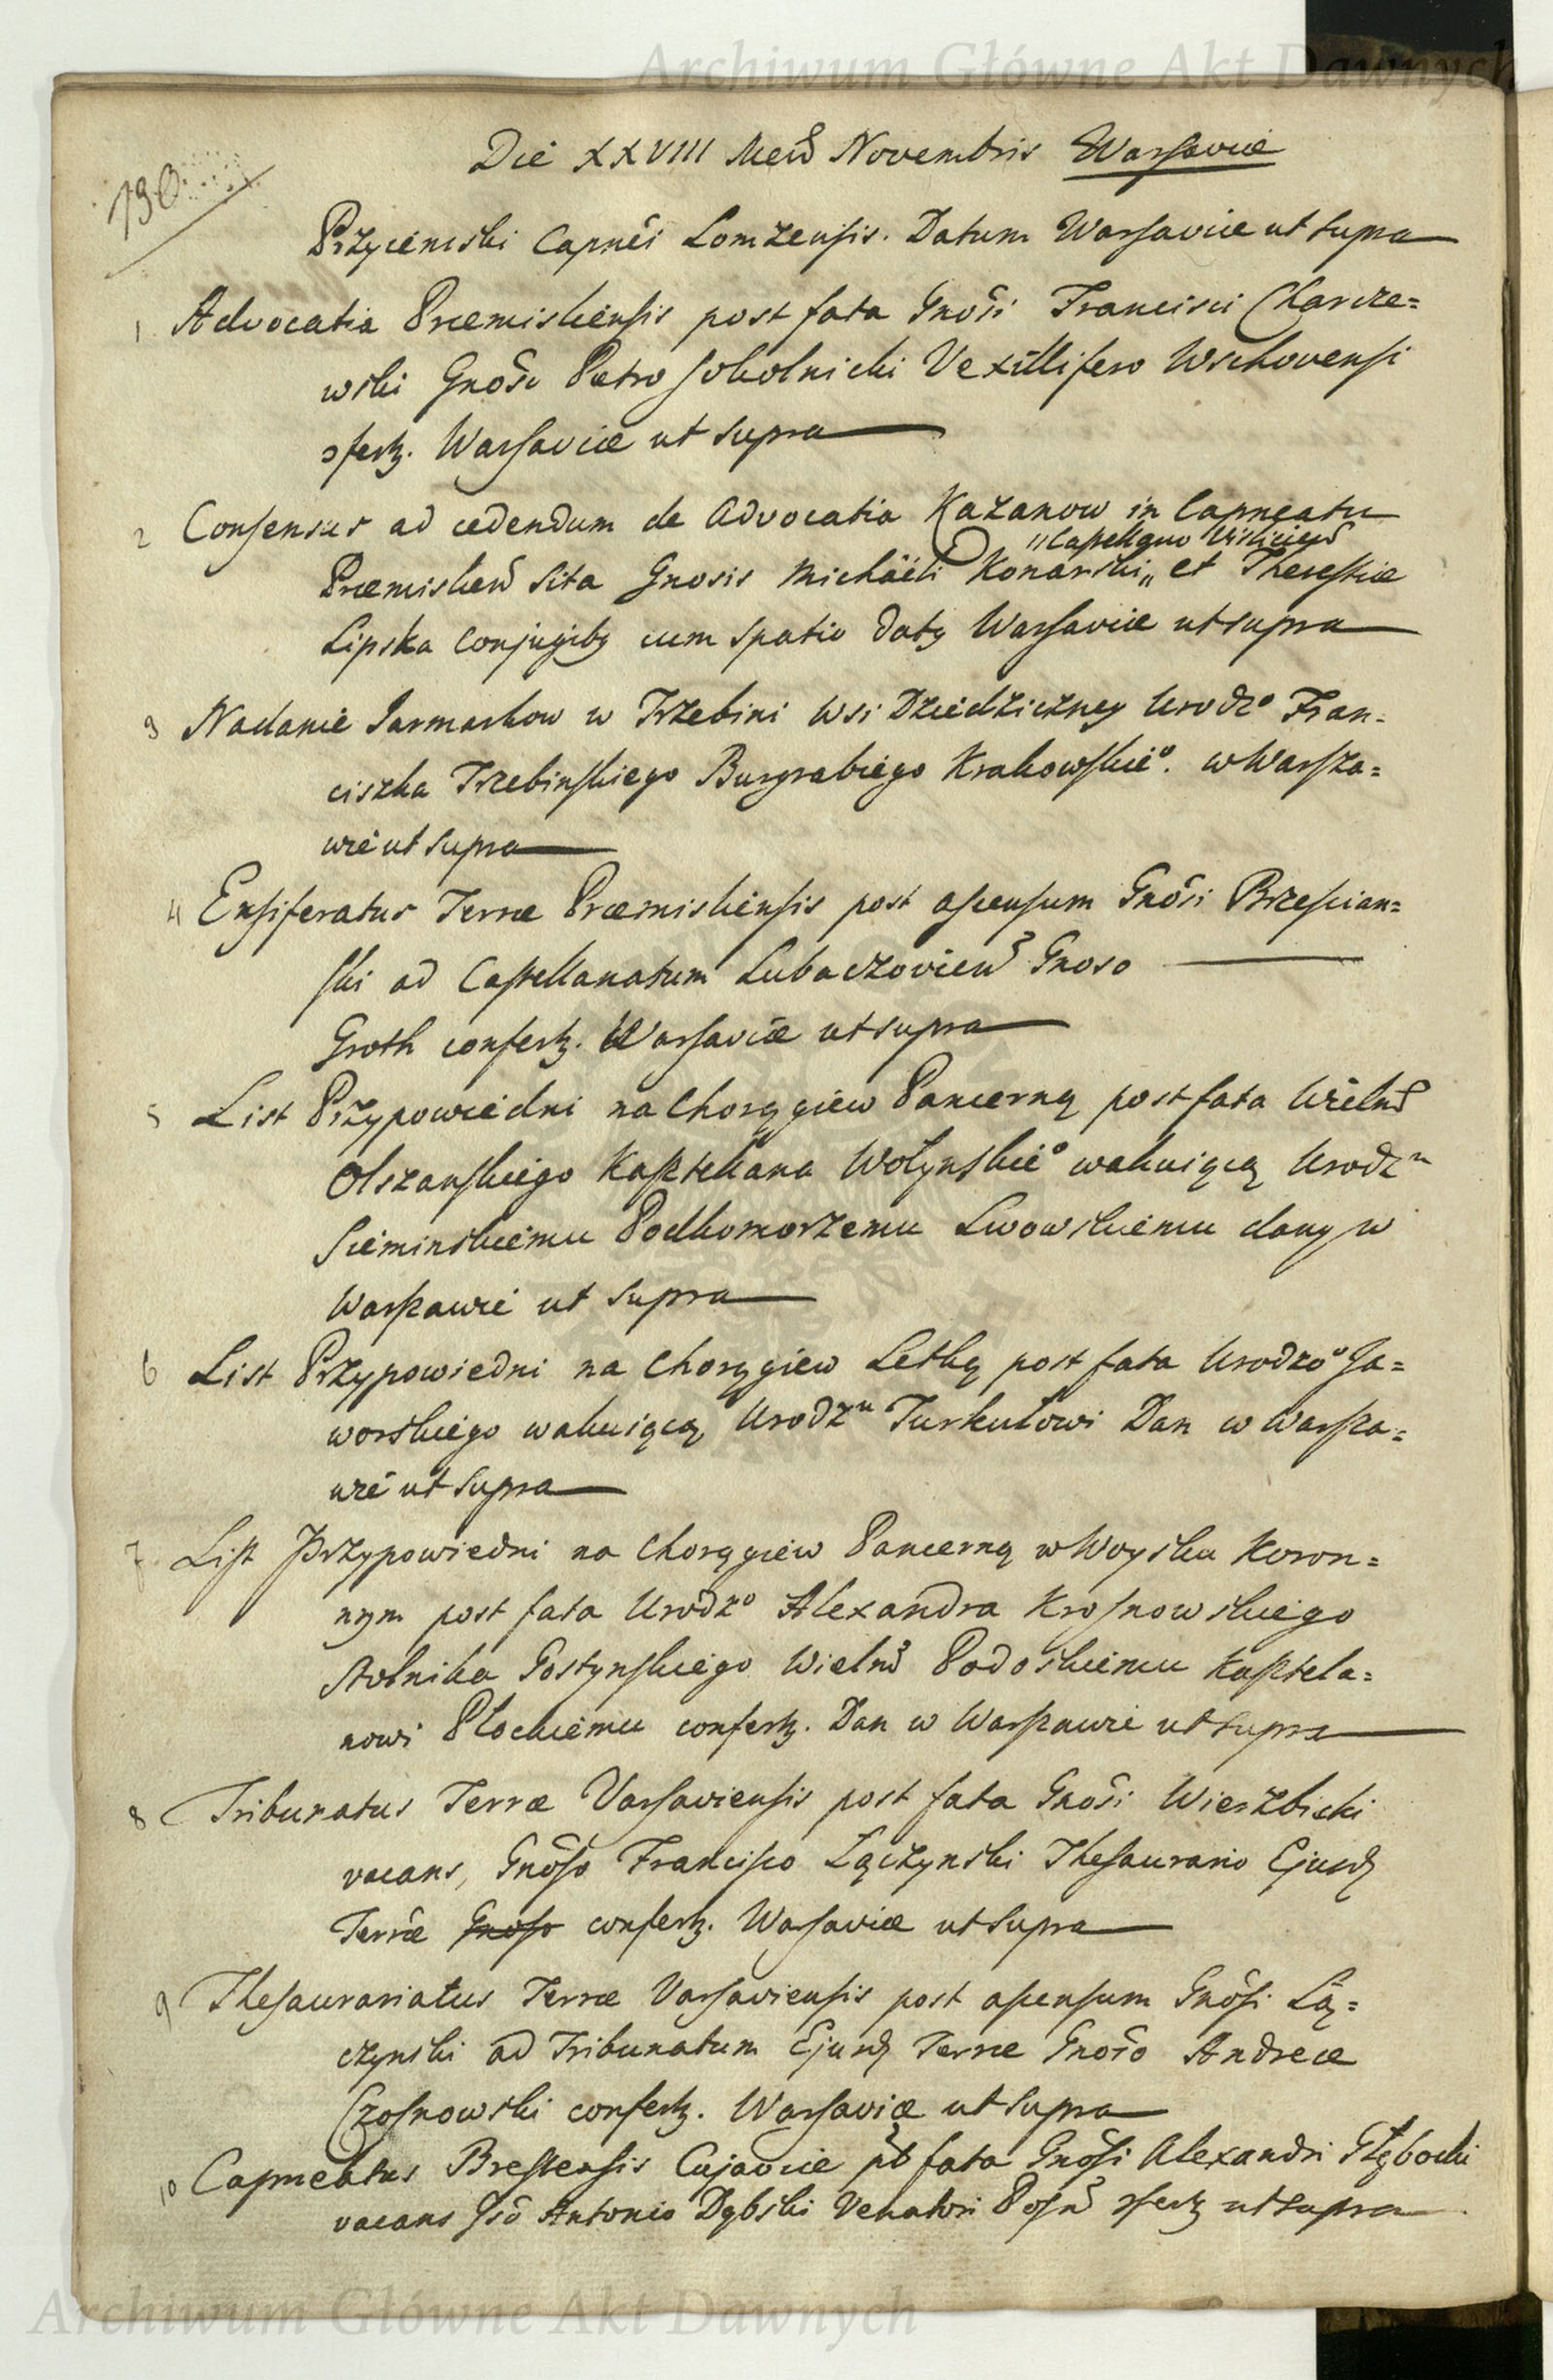 Archiwum Główne Akt Dawnych
190
Die XXVIII Mens Novembris Warsaviæ
Przyiemski Capnei Lomzensis. Datum Warsaviæ ut supra
1 Advocatia Præmisliensis post fata Gnosi Francisci Charcze=
wski Gnoso Petro Sokolnicki Vexillifero Wschovensi
ↄfertz. Warsaviæ ut supra
2 Consensus ad cedendum de Advocatia Kazanow in Capneatu
"Castellano Visliciens
Præmisliens sita Gnosis Michaëli Konarski " et Theresiæ
Lipska Conjugiby cum spatio daty Warsaviæ ut supra
3 Nadanie Jarmarkow w Trzebini Wsi Dziedziczney Urodzo Fran=
ciszka Trzebinskiego Burgrabiego Krakowskieo. w Warsza=
wie ut supra
4 Ensiferatus Terræ Præmisliensis post ascensum Gnosi Brzescian=
ski ad Castellanatum Lubaczoviens Gnoso
Groth confertz. Warsaviæ ut supra
5 List Przypowiedni na Chorągiew Pancerną post fata Wielm
Olszanskiego Kasztellana Wołynskieo wakuiącą Urodzu
Sieminskiemu Podkomorzemu Lwowskiemu dany w
Warszawie ut supra
6 List Przypowiedni na Chorągiew Letką post fata Urodzo Ja=
worskiego wakuiącą Urodzu Turkułowi Dan w Warsza=
wie ut supra
7. List Przypowiedni na Chorągiew Pancerną w Woysku Koron=
nym post fata Urodzo Alexandra Krosnowskiego
Stolnika Gostynskiego Wielm Podoskiemu Kasztela=
nowi Płockiemu confertz. Dan w Warszawie ut supra
8 Tribunatus Terræ Varsaviensis post fata Gnosi Wierzbicki
vacans, Gnoso Francisco Łączynski Thesaurario Ejusd
Terræ Gnoso confertz. Warsaviæ ut supra
9 Thesaurariatus Terræ Varsaviensis post ascensum Gnosi Łą=
czynski ad Tribunatum Ejusd Terræ Gnoso Andreæ
Czosnowski confertz. Warsaviæ ut supra
10 Capneatus Brestensis Cujaviæ pt fata Gnosi Alexandri Głębocki
vacans Gso Antonio Dąbski Venatori Posn ↄfertz ut supra
Archiwum Główne Akt Dawnych